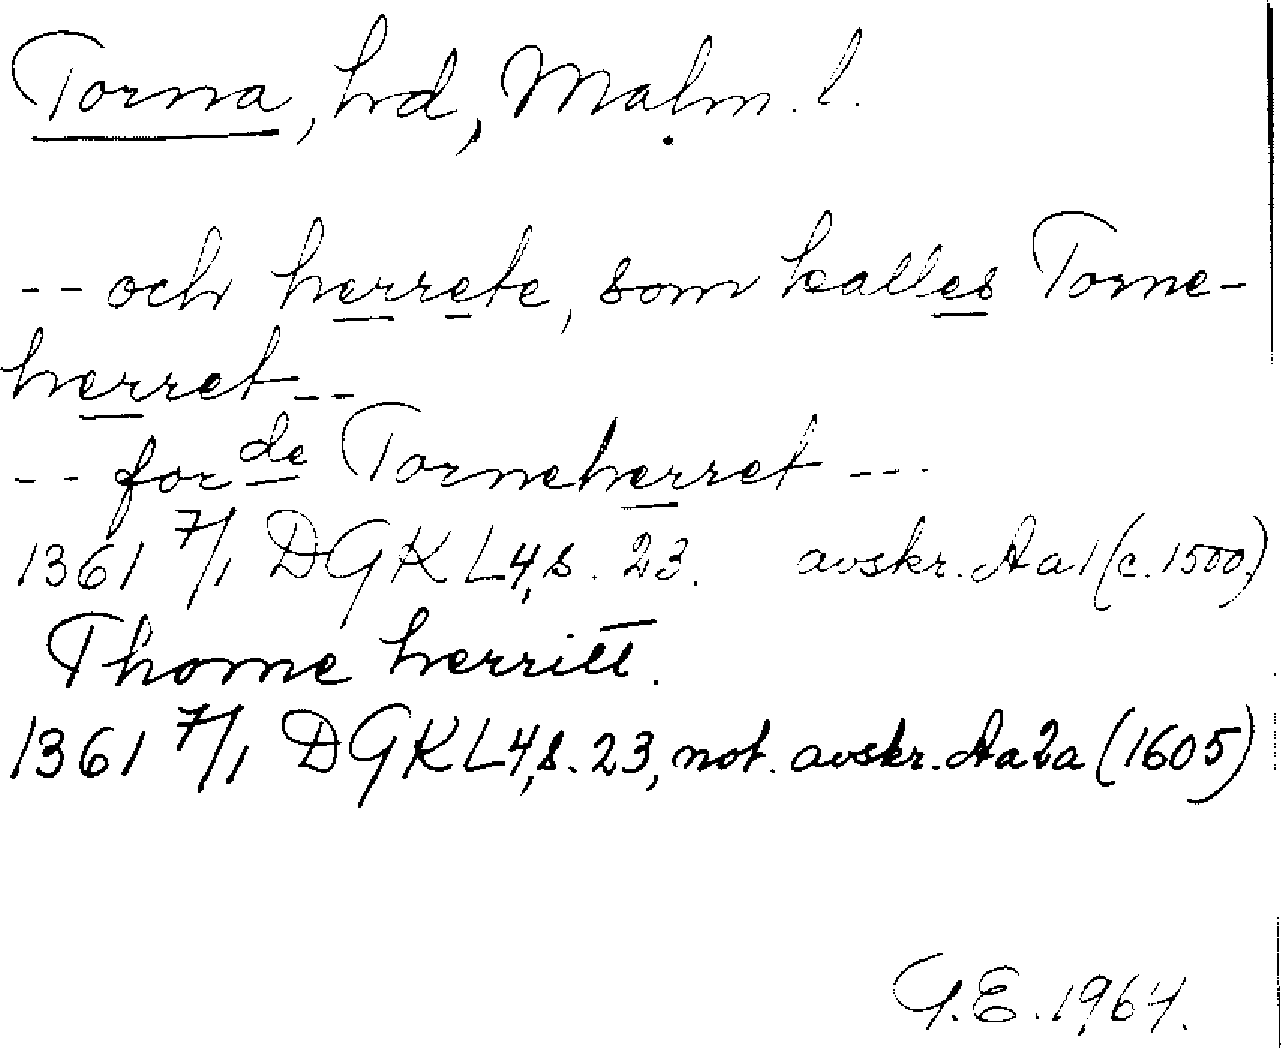 Torna, hd, Malm. l.
-- och herrete, som kalles Torne-
herret --
-- for de Torneherret ---
1361 7/1 DGK L4, s. 23. avskr. Aa1 (c. 1500)
Thorne herritt.
1361 7/1 DGK L4, s. 23, not. avskr. Aa2a (1605)
G.E. 1964.